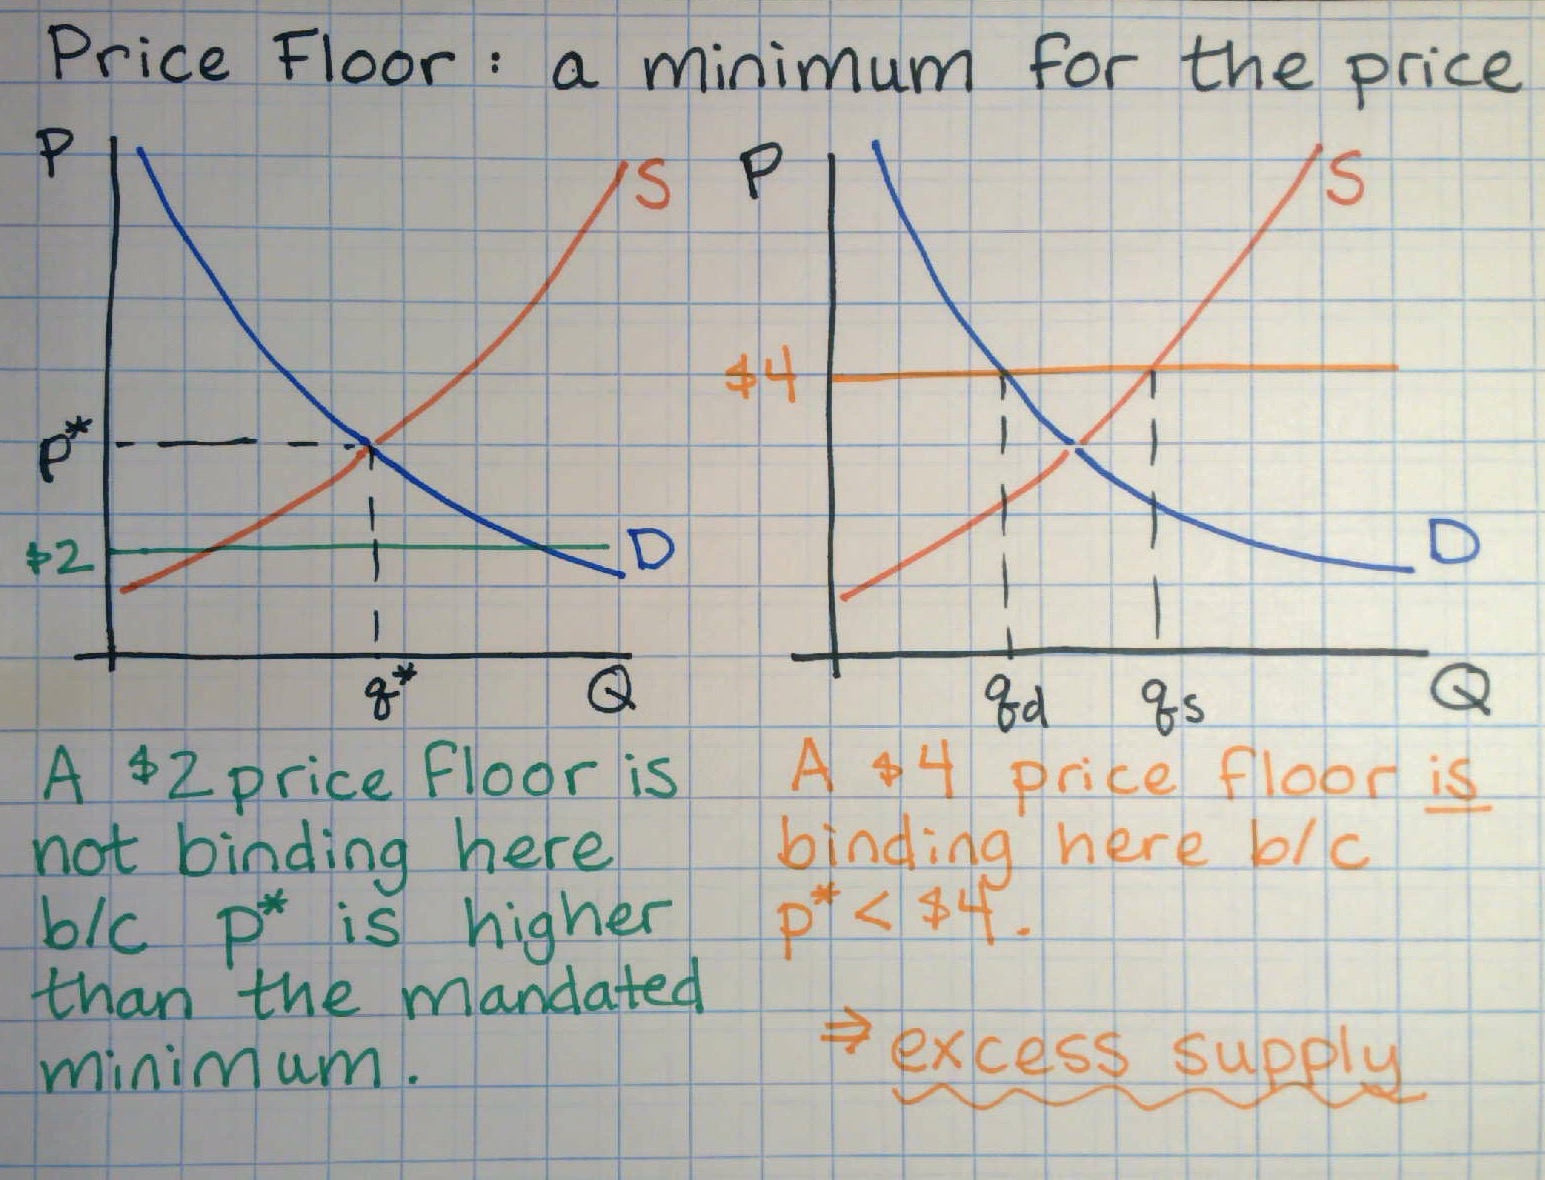 Price Floor: a minimum for the price
P
S
P*
$2
D
q*
Q
P
S
$4
D
qd
qs
Q
A $2 price floor is
not binding here
b/c p* is higher
than the mandated
minimum.
A $4 price floor is
binding here b/c
p* < $4.
⇒ excess supply